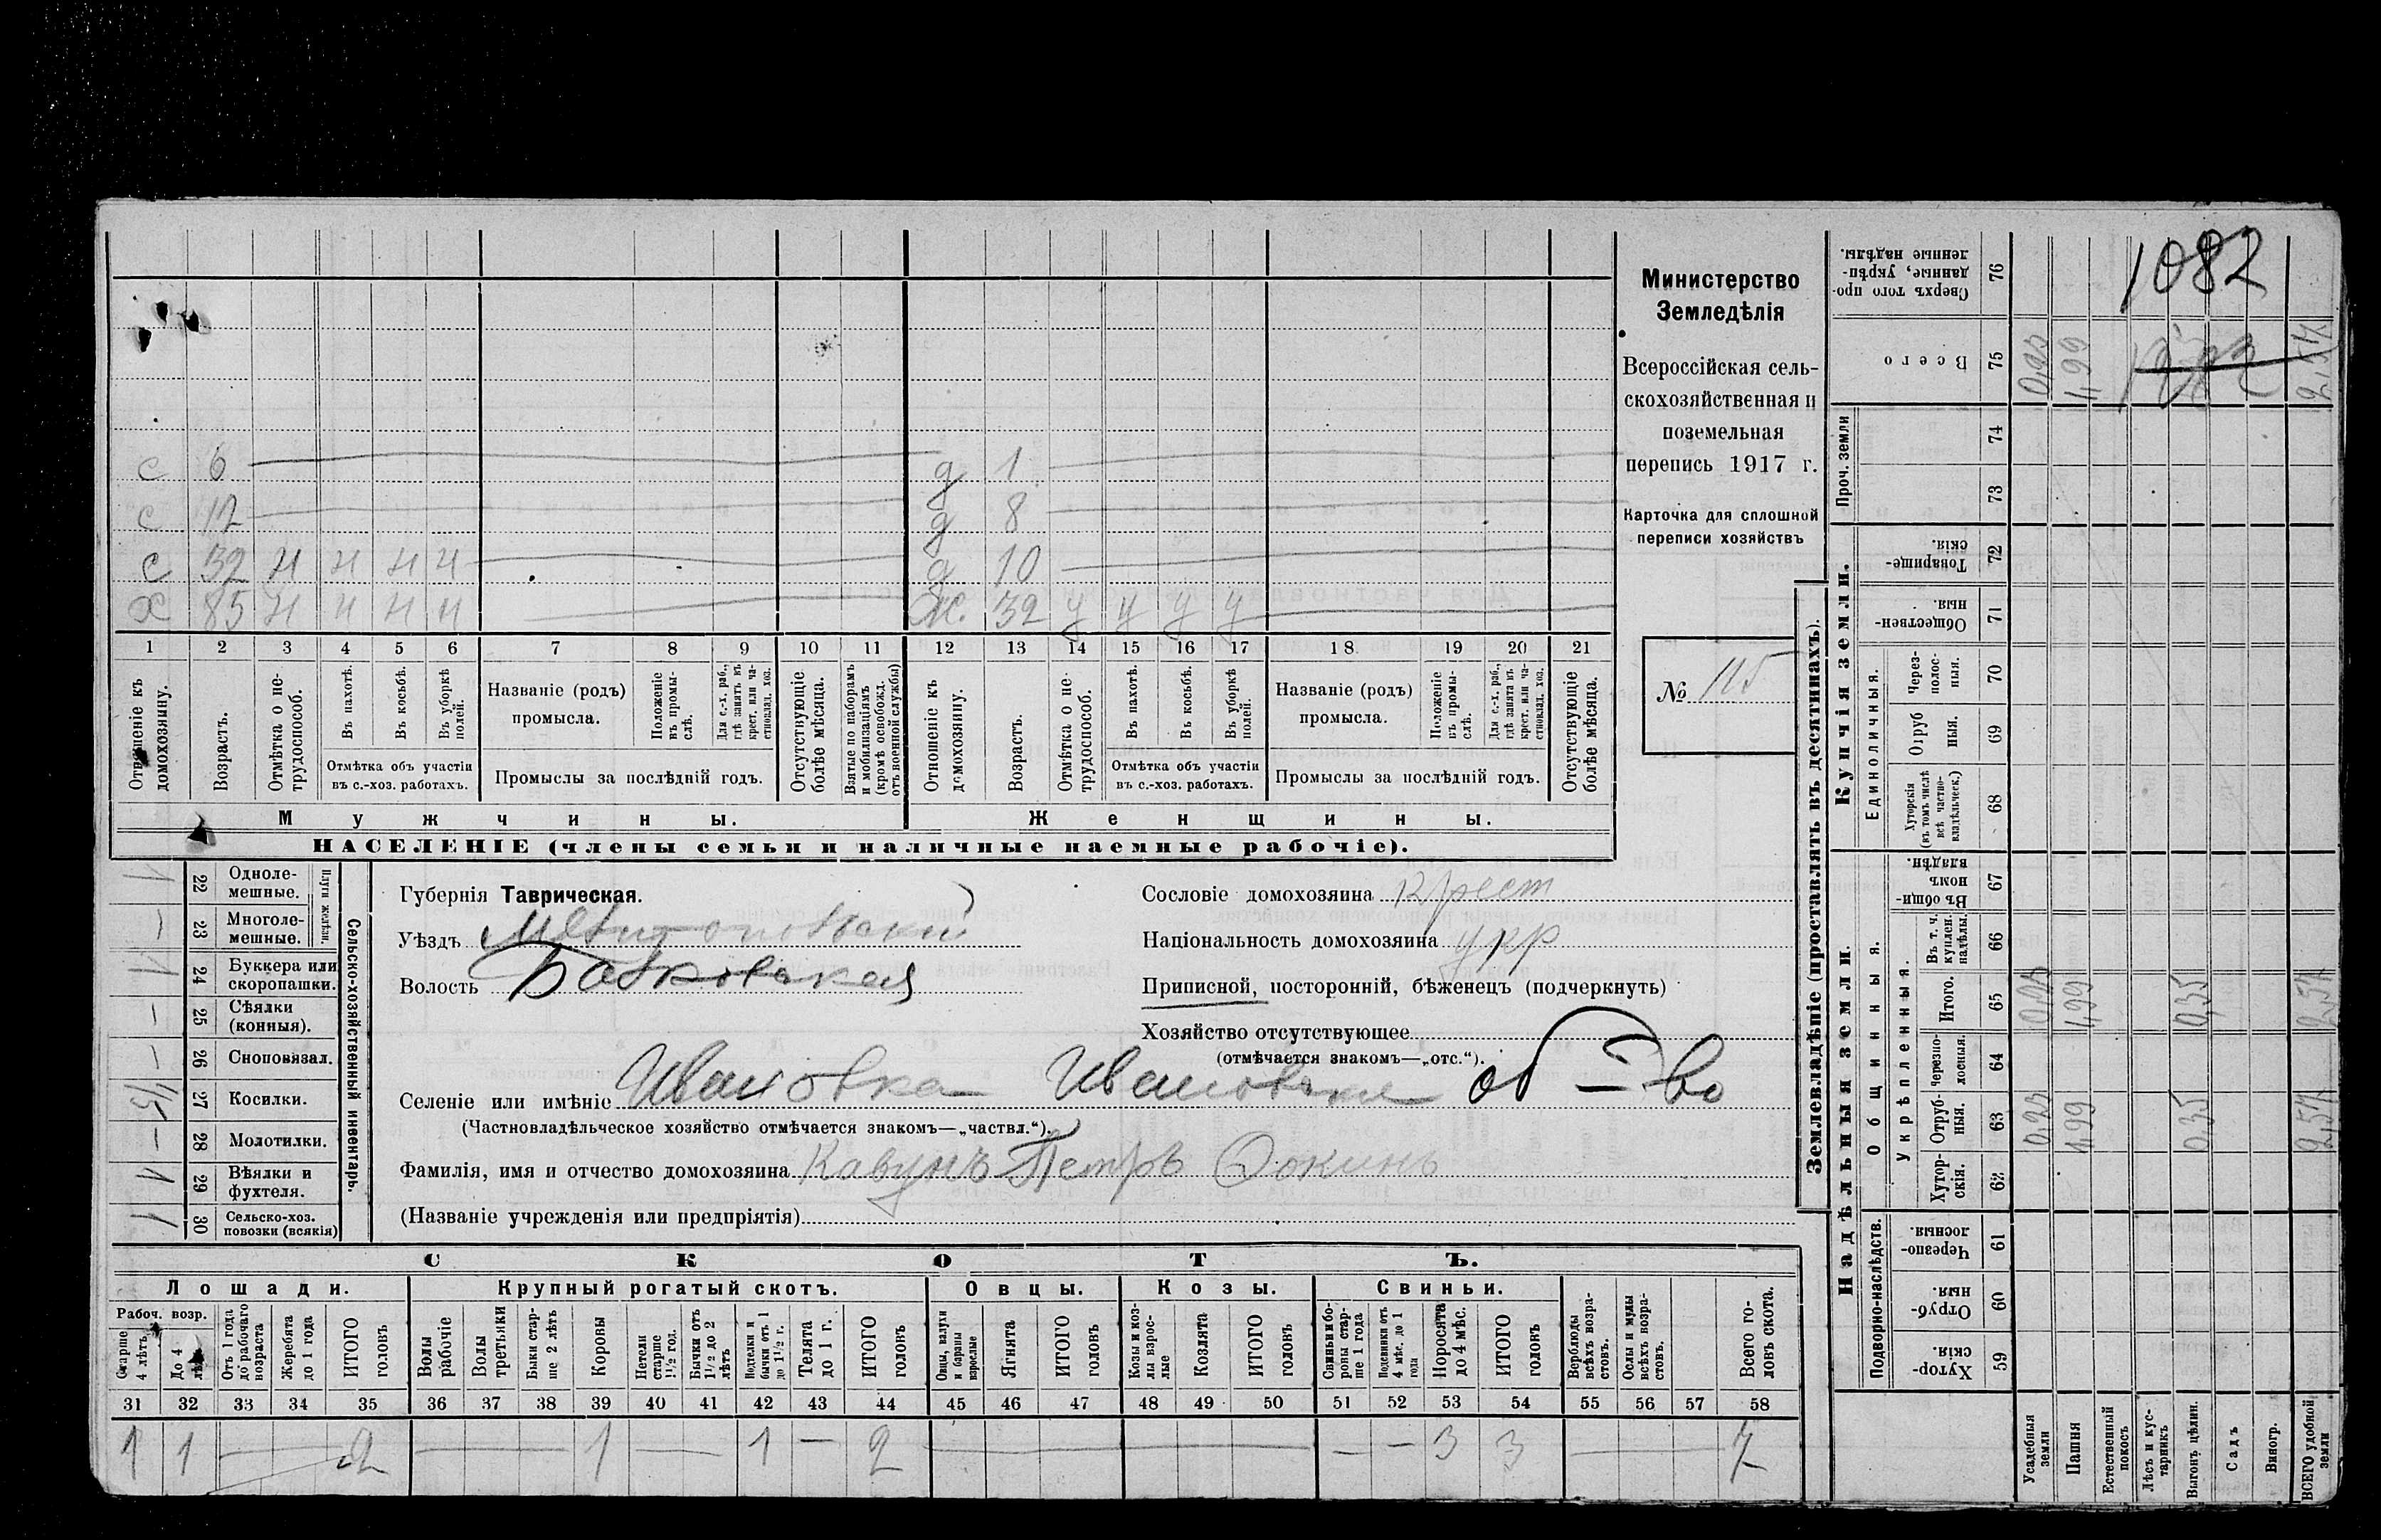 1082
Министерство
Земледѣлія
Всероссійская сель-
скохозяйственная и
поземельная
перепись 1917 г.
Карточка для сплошной
переписи хозяйствъ
№ 115
с 6
с 12
с 32 н н н н
х 85 н н н н
д 1
д 8
д 10
ж. 32 у у у у
1 2 3 4 5 6 7 8 9 10 11 12 13 14 15 16 17 18 19 20 21
Отношеніе къ домохозяину.
Возрастъ.
Отмѣтка о не-трудоспособ.
Въ пахотѣ.
Въ косьбѣ.
Въ уборкѣ полей.
Отмѣтка объ участіи
въ с.-хоз. работахъ.
Названіе (родъ)
промысла.
Положеніе въ промы-слѣ.
Для с.-х. раб., гдѣ занятъ въ крест. или ча-стновлад. хоз.
Промыслы за послѣдній годъ.
Отсутствующіе болѣе мѣсяца.
Взятые по наборамъ и мобилизаціямъ (кромѣ освобожд. отъ военной службы)
Отношеніе къ домохозяину.
Возрастъ.
Отмѣтка о не-трудоспособ.
Въ пахотѣ.
Въ косьбѣ.
Въ уборкѣ полей.
Отмѣтка объ участіи
въ с.-хоз. работахъ.
Названіе (родъ)
промысла.
Положеніе въ промы-слѣ.
Для с.-х. раб., гдѣ занята въ крест. или ча-стновлад. хоз.
Промыслы за послѣдній годъ.
Отсутствующіе болѣе мѣсяца.
Мужчины.
Женщины.
НАСЕЛЕНІЕ (члены семьи и наличные наемные рабочіе).
Сельско-хозяйственный инвентарь.
Плуги желѣзн.
22 Одноле-мешные. 1
23 Многоле-мешные. —
24 Буккера или скоропашки. 1
25 Сѣялки (конныя). —
26 Сноповязал. —
27 Косилки.
28 Молотилки. —
29 Вѣялки и фухтеля. 1
30 Сельско-хоз. повозки (всякія) 1
Губернія Таврическая.
Уѣздъ Мелитопольскій
Волость
Сословіе домохозяина крест
Національность домохозяина укр
Приписной, посторонній, бѣженецъ (подчеркнуть)
Хозяйство отсутствующее
(отмѣчается знакомъ—„отс.“).
Селеніе или имѣніе Ивановка Ивановское об-во
(Частновладѣльческое хозяйство отмѣчается знакомъ—„частвл.“).
Фамилія, имя и отчество домохозяина Кавунъ Петръ
(Названіе учрежденія или предпріятія)
СКОТЪ.
Лошади. Крупный рогатый скотъ. Овцы. Козы. Свиньи.
Рабоч. возр.
Старше 4 лѣтъ
До 4 лѣтъ
Отъ 1 года до рабочаго возраста
Жеребята до 1 года
ИТОГО головъ
Волы рабочіе
Волы третьяки
Быки стар-ше 2 лѣтъ
Коровы
Нетели старше 1½ год.
Бычки отъ 1½ до 2 лѣтъ
Подтелки и бычки отъ 1 до 1½ г.
Телята до 1 г.
ИТОГО головъ
Овцы, валухи и бараны взрослые
Ягнята
ИТОГО головъ
Козы и коз-лы взрос-лые
Козлята
ИТОГО головъ
Свиньи и бо-ровы стар-ше 1 года
Подсвинки отъ 4 мѣс. до 1 года
Поросята до 4 мѣс.
ИТОГО головъ
Верблюды всѣхъ возра-стовъ.
Ослы и мулы всѣхъ возра-стовъ.
Всего го-ловъ скота.
31 32 33 34 35 36 37 38 39 40 41 42 43 44 45 46 47 48 49 50 51 52 53 54 55 56 57 58
1 1 — 2 — 1 — 1 — 2 — — — 3 3 — 7
Землевладѣніе (проставлять въ десятинахъ).
Надѣльныя земли.
Купчія земли.
Проч. земли
Подворно-наслѣдств.
Общинныя.
Укрѣпленныя.
Единоличныя.
76 Сверхъ того про-данные, укрѣп-ленные надѣлы.
75 Всего 1,99 2,57
74
73
72 Товарище-скія.
71 Обществен-ныя.
70 Через-полос-ныя.
69 Отруб ныя.
68 Хуторскія (въ томъ числѣ всѣ частно-владѣльческ.)
67 Въ общин-номъ владѣн.
66 Въ т. ч. куплен. надѣлы.
65 Итого. 0,23 1,99 0,35 2,57
64 Черезпо-лосныя.
63 Отруб-ныя. 0,23 1,99 0,35 2,57
62 Хутор-скія.
61 Черезпо-лосныя.
60 Отруб-ныя.
59 Хутор-скія.
Усадебныя земли
Пашня
Естественный покосъ
Лѣсъ и кус-тарникъ
Выгонъ цѣлин.
Садъ
Виногр.
ВСЕГО удобной земли